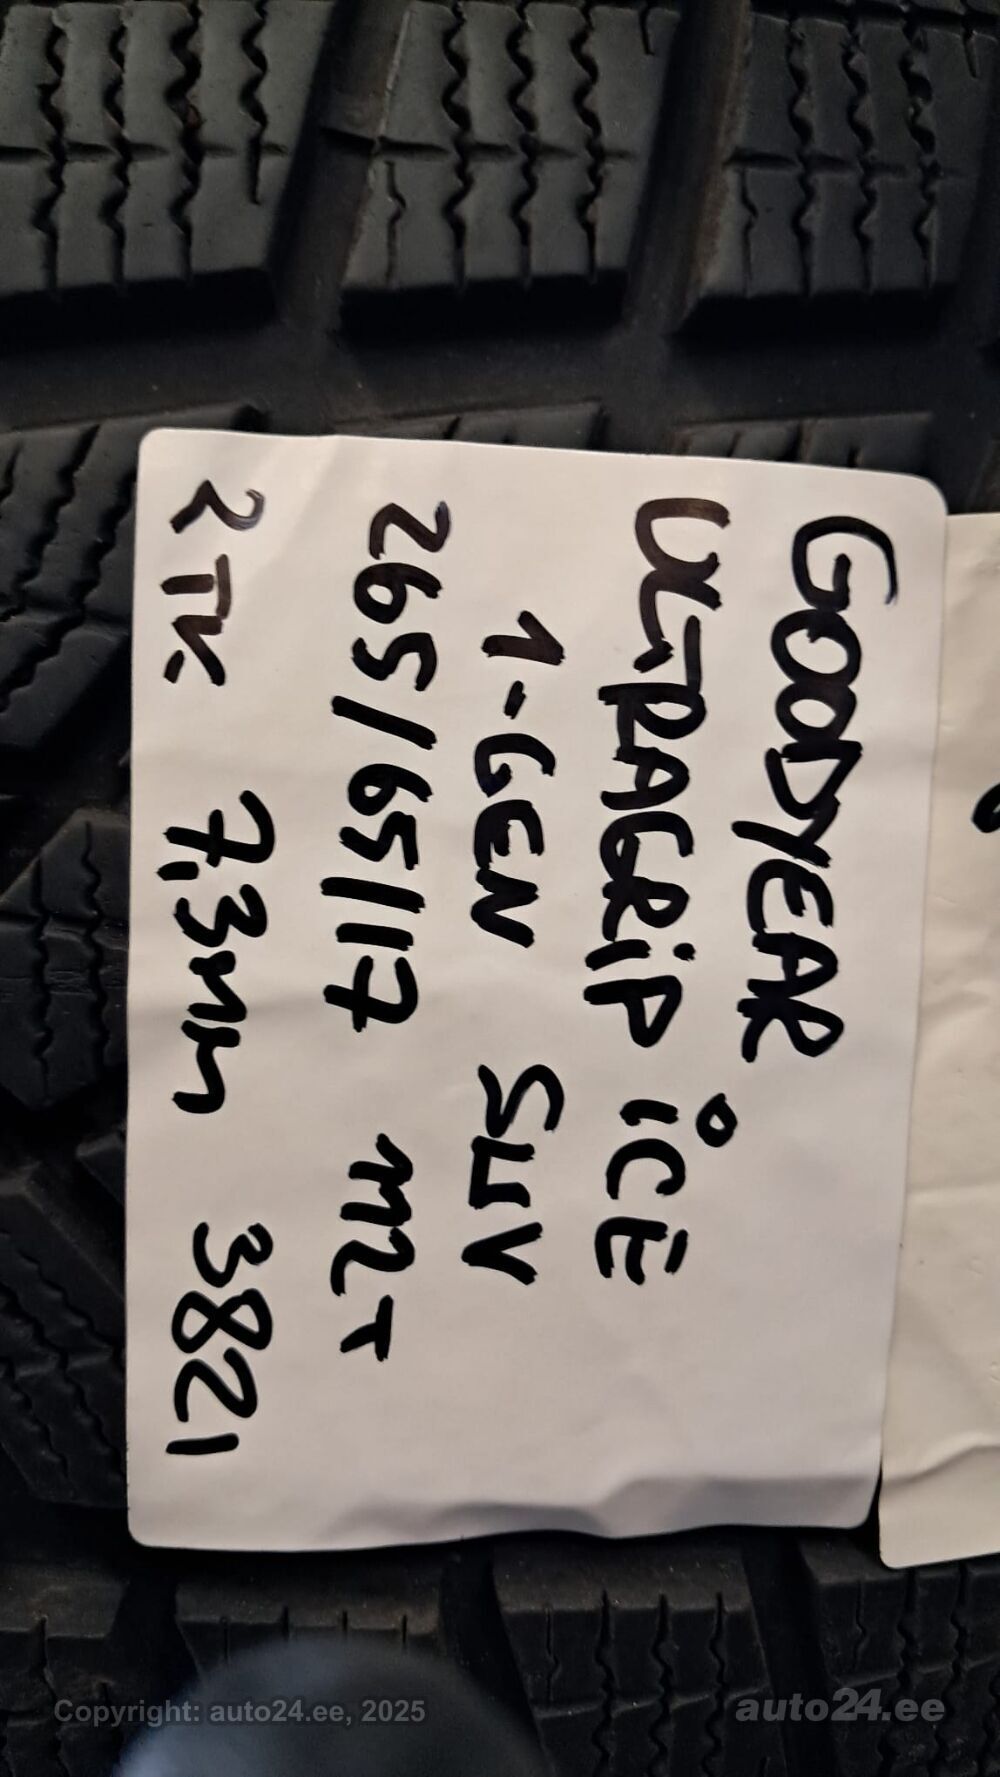 GOODYEAR
ULTRAGRIP ICE
1-GEN SUV
265/65/17 112-T
2TK 7,3mm 3821
Copyright: auto24.ee, 2025
auto24.ee